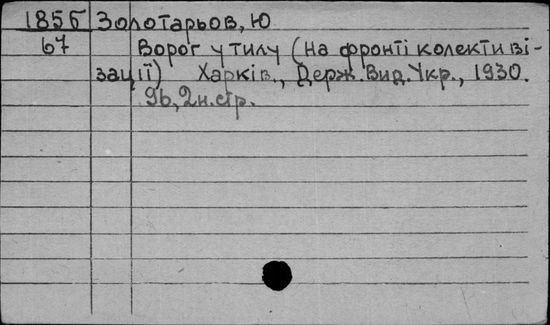 185б Золотарьов, Ю
67 Ворог у тилу (на фронті колективі-
зації) Харків., Держ.Вид.Укр., 1930.
96, 2н.стр.